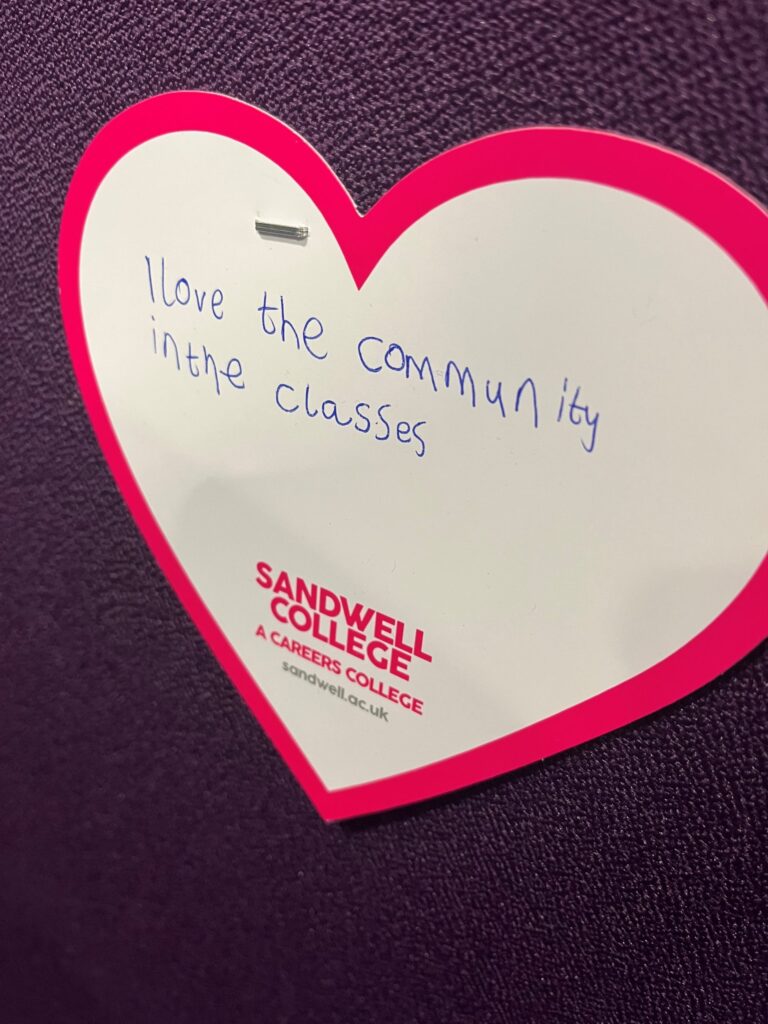 I love the community
in the classes
SANDWELL
COLLEGE
A CAREERS COLLEGE
sandwell.ac.uk